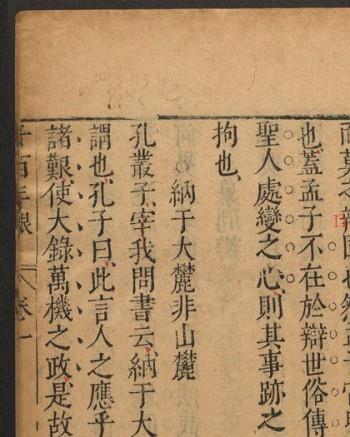 也蓋孟子不在於辯世俗傳
聖人處變之心則其事跡之
拘也、
○納于大麓非山麓
孔叢子、宰我問書云、納于大
謂也、孔子曰、此言人之應乎
諸艱、使大錄萬機之政、是故
千百年眼 卷一